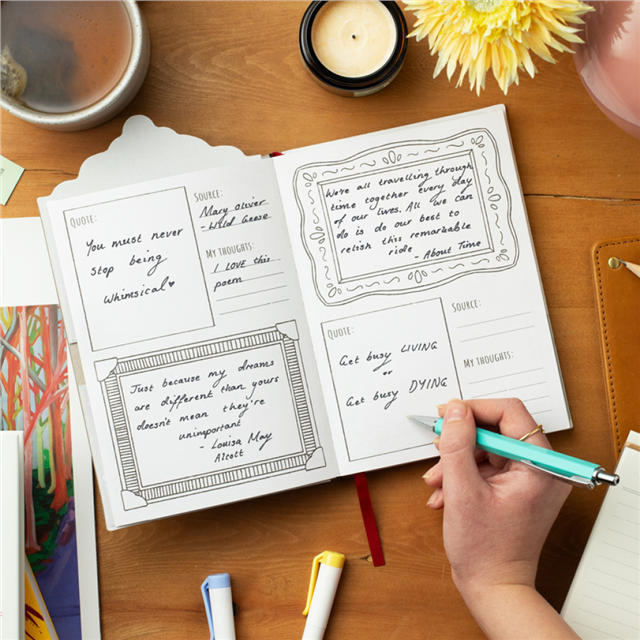 QUOTE:
You must never
stop being
whimsical♥
SOURCE:
Mary Oliver
- Wild Geese
MY THOUGHTS:
I LOVE this
poem
Just because my dreams
are different than yours
doesn't mean they're
unimportant
- Louisa May
Alcott
We're all travelling through
time together every day
of our lives. All we can
do is do our best to
relish this remarkable
ride
- About Time
QUOTE:
Get busy LIVING
or
Get busy DYING
SOURCE:
MY THOUGHTS: